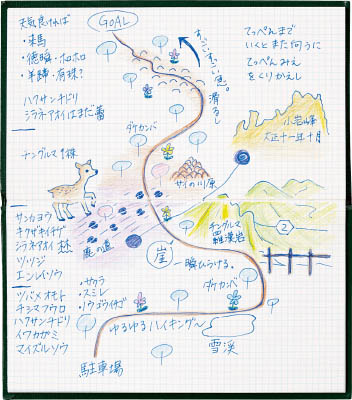 天気良ければ
・来馬
・徳瞬・ホロホロ
・羊蹄・有珠?
ハクサンチドリ
シラネアオイはまだ蕾
GOAL
すっごい急。滑るし
てっぺんまで
いくとまた向うに
てっぺんみえ
をくりかえし
ダケカンバ
小岩峰
大正十一年十月
チングルマ1株
サイの川原
サンカヨウ
キクザキイチゲ
シラネアオイ
ツツジ
エンレイソウ
鹿の道
崖
一瞬ひらける。
チングルマ
羅漢岩
2
ダケカンバ
・サクラ
・スミレ
・ノウゴウイチゴ
ツバメオモト
チシマフウロ
ハクサンチドリ
イワカガミ
マイズルソウ
ゆるゆるハイキング〜
雪渓
駐車場